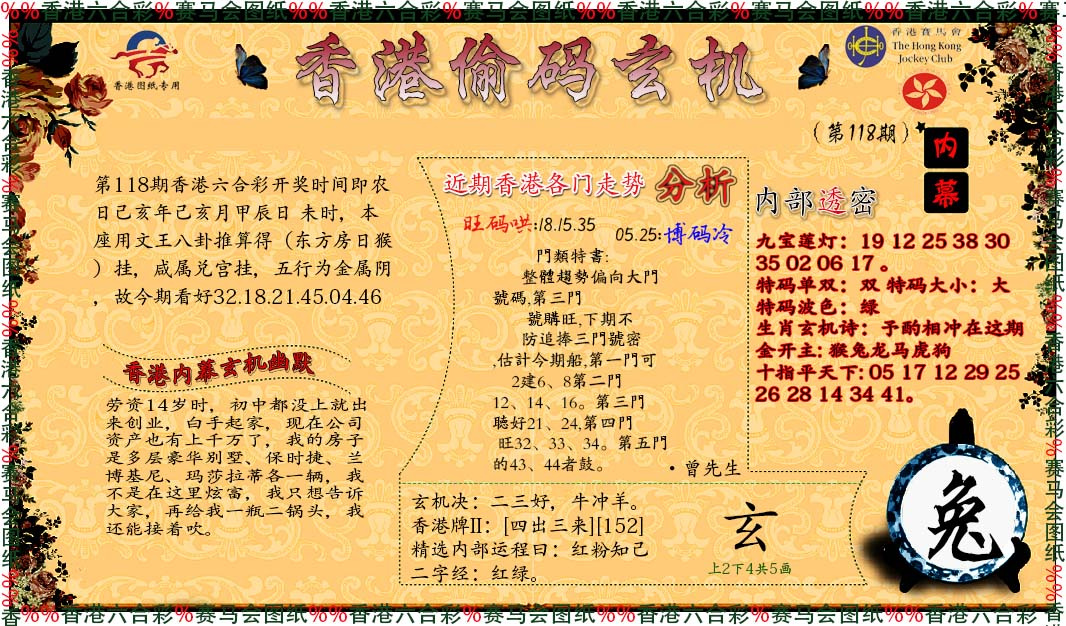 %%香港六合彩%赛马会图纸%%香港六合彩%赛马会图纸%%香港六合彩%赛马会图纸%%香港六合彩%赛马
香港图纸专用
香港偷码玄机
香港賽馬會
The Hong Kong
Jockey Club
（第118期）
内
幕
第118期香港六合彩开奖时间即农
日己亥年己亥月甲辰日 未时，本
座用文王八卦推算得（东方房日猴
）挂，咸属兑宫挂，五行为金属阴
，故今期看好32.18.21.45.04.46
香港内幕玄机幽默
劳资14岁时，初中都没上就出
来创业，白手起家，现在公司
资产也有上千万了，我的房子
是多层豪华别墅、保时捷、兰
博基尼、玛莎拉蒂各一辆，我
不是在这里炫富，我只想告诉
大家，再给我一瓶二锅头，我
还能接着吹。
近期香港各门走势 分析
旺码哄:18.15.35
05.25:博码冷
門類特書:
整體趨勢偏向大門
號碼,第三門
號購旺,下期不
防追捧三門號密
,估計今期船,第一門可
2建6、8第二門
12、14、16。第三門
聽好21、24,第四門
旺32、33、34。第五門
的43、44者鼓。
·曾先生
玄机决：二三好，牛冲羊。
香港牌II：[四出三来][152]
精选内部运程曰：红粉知己
二字经：红绿。
玄
上2下4共5画
内部透密
九宝莲灯：19 12 25 38 30
35 02 06 17 。
特码单双：双 特码大小：大
特码波色：绿
生肖玄机诗：予酌相冲在这期
金开主: 猴兔龙马虎狗
十指平天下: 05 17 12 29 25
26 28 14 34 41。
兔
%%香港六合彩%赛马会图纸%%香港六合彩%赛马会图纸%%
%%香港六合彩%赛马会图纸%%香港六合彩%赛马会图纸%%香港
香%%香港六合彩%赛马会图纸%%香港六合彩%赛马会图纸%%香港六合彩%赛马会图纸%%香港六合彩%